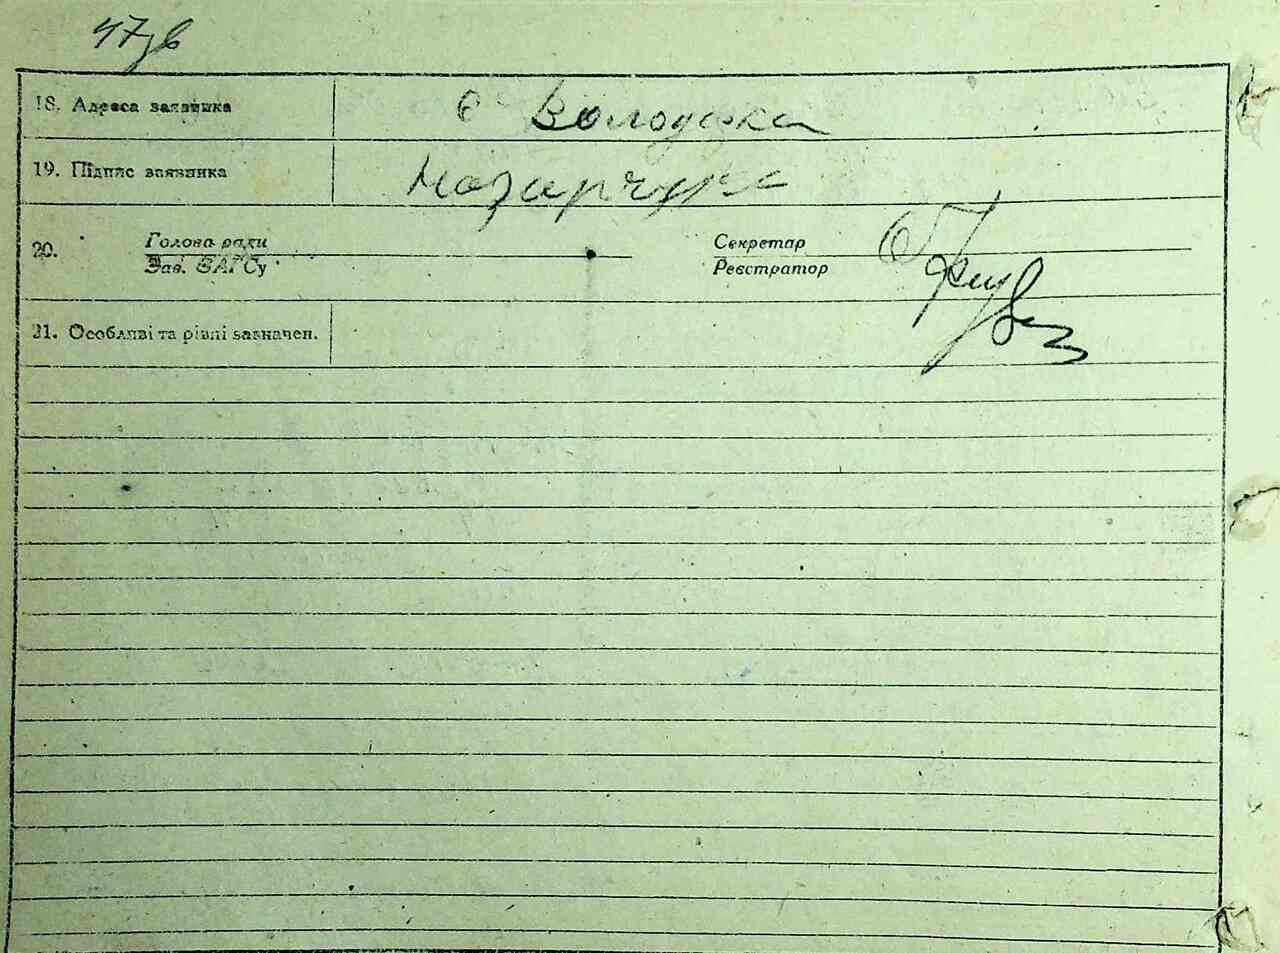 47зв
18. Адреса заявника с Володувка
19. Підпис заявника Назарчук
20. Голова ради Секретар
Зав. ЗАГСу Реєстратор
21. Особливі та рівні зазначен.